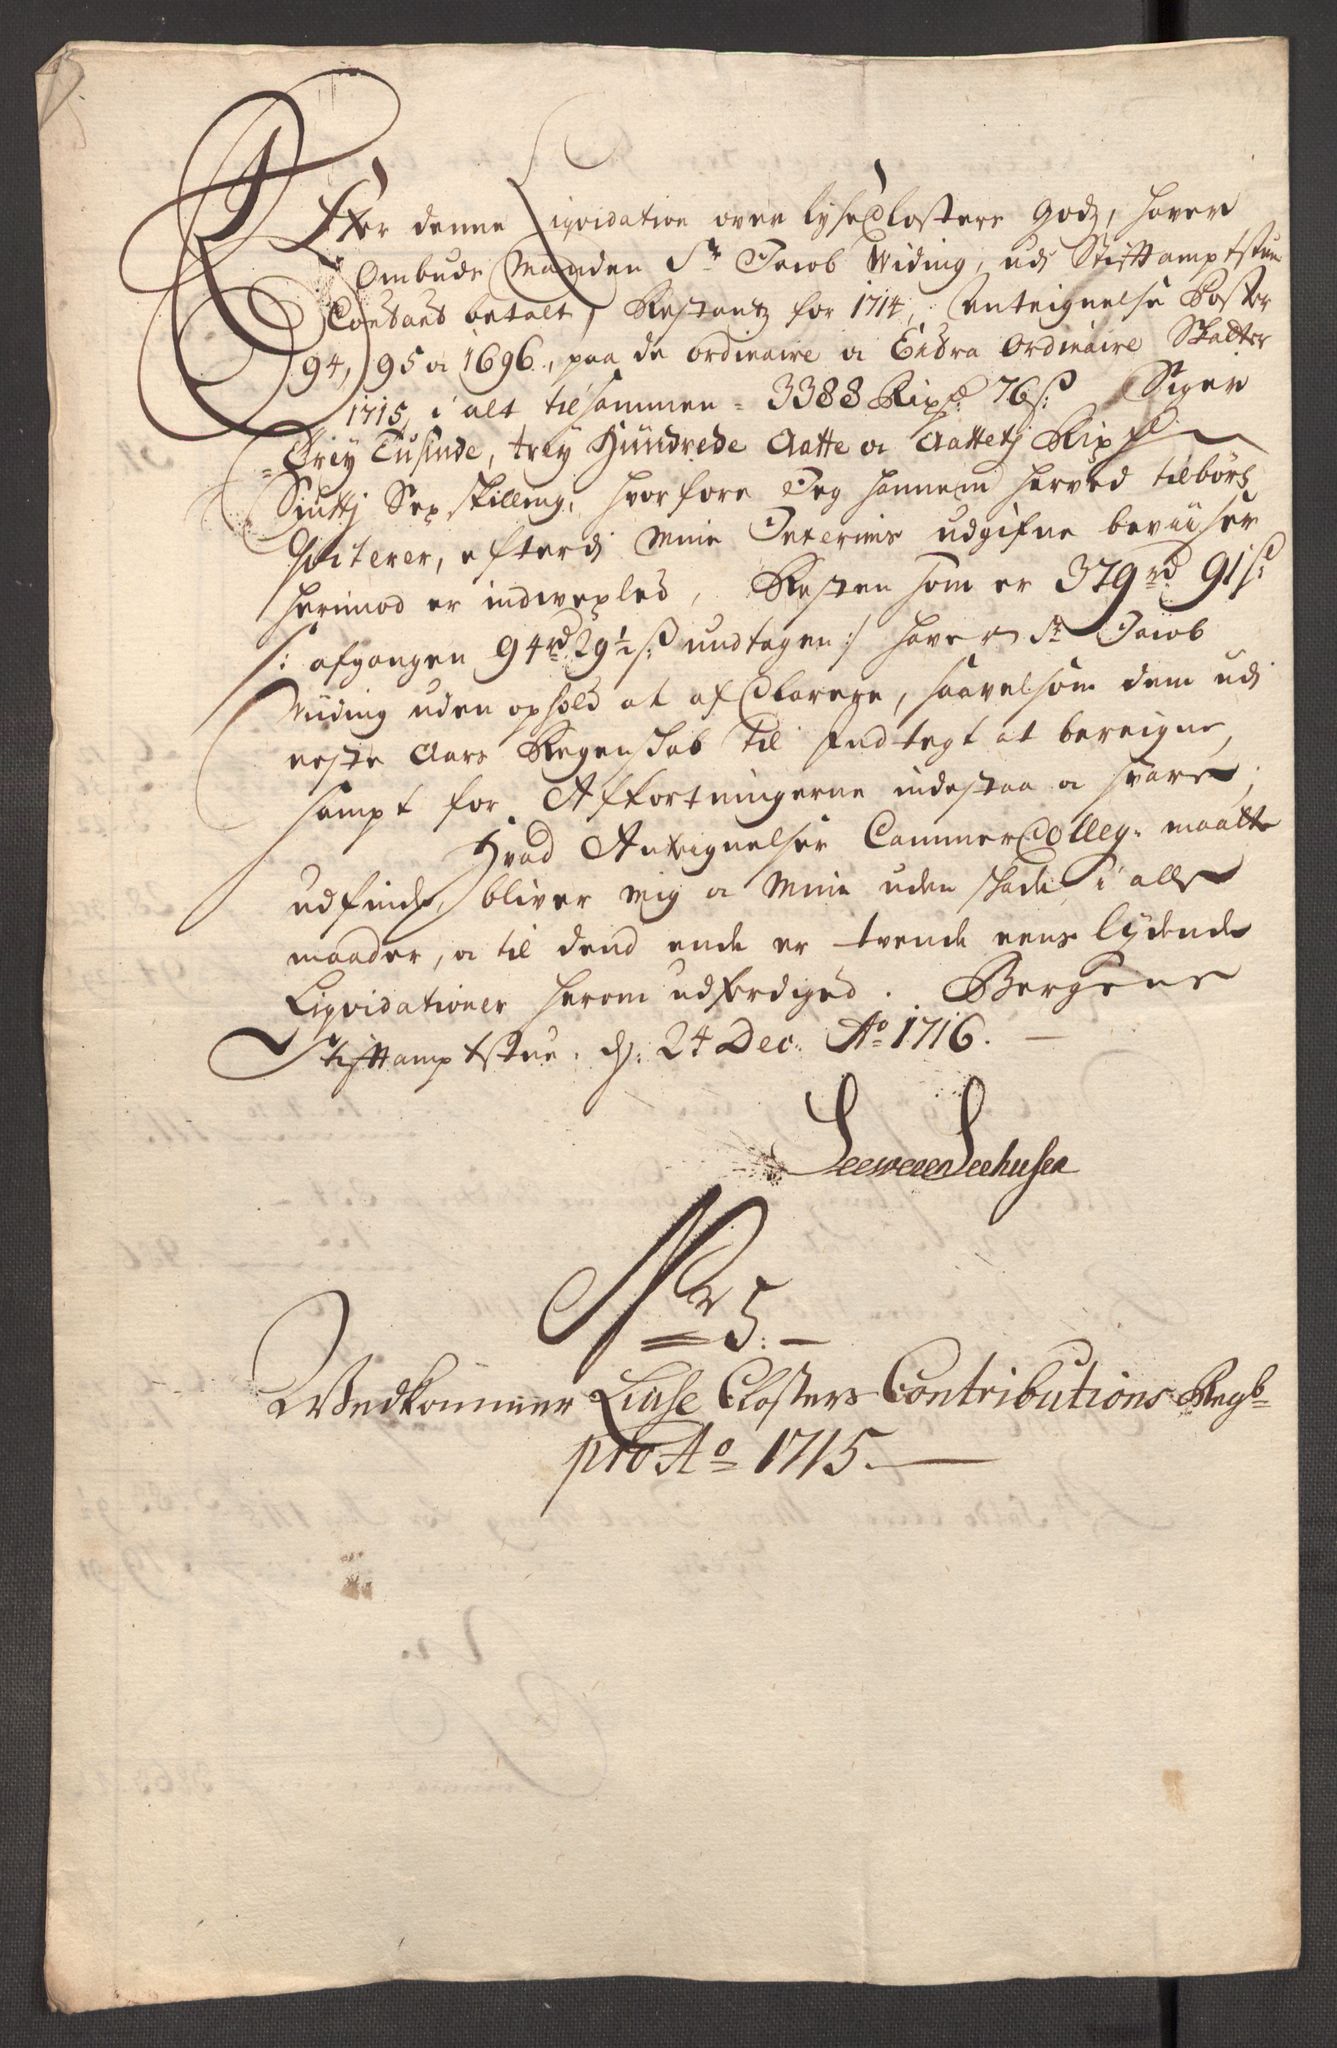 Efter denne Liqvidation over lyseClosters Godz, haver
Ombudz Manden Sr Jacob Widing, udj Stifftamptstuen
Contant betalt, Restantz for 1714, Anteignelse Poster
94, 95 oc 1696, paa de ordinaire oc Extra Ordinaire Skatter
1715, i alt tilsammen = 3388 Rixd: 76 s: Siger
= Trey Tusinde, trey Hundrede Aatte oc Aattetj Rixd
Siuttj Sex skilling, hvorfore Jeg hannem herved tilbörl:
qviterer, efterdj Mine Interims udgifne beviiser
herimod er indvexled, Resten som er 379 rd 91 s:
/: afgangen 94 rd 29½ s: undtagen :/ haver Sr Jacob
Wiiding uden ophold at af Clarere, saavelsom dem udj
neste Aars Regenskab til Indtegt at bereigne,
sampt for Affkortningerne indestaa oc svare,
Hvad Anteignelser CammerColleg: maatte
udfinde, bliver mig oc Mine uden skade i alle
maader, oc til dend ende er tvende eens lydende
Liqvidationer herom udferdiged. Bergens
Stifttamptstue, dj: 24 Dec: Ao 1716.
Seeweren Seehusen
Nr 5.
Vedkommer Liuse Closters Contributions Regb
pro Ao 1715.